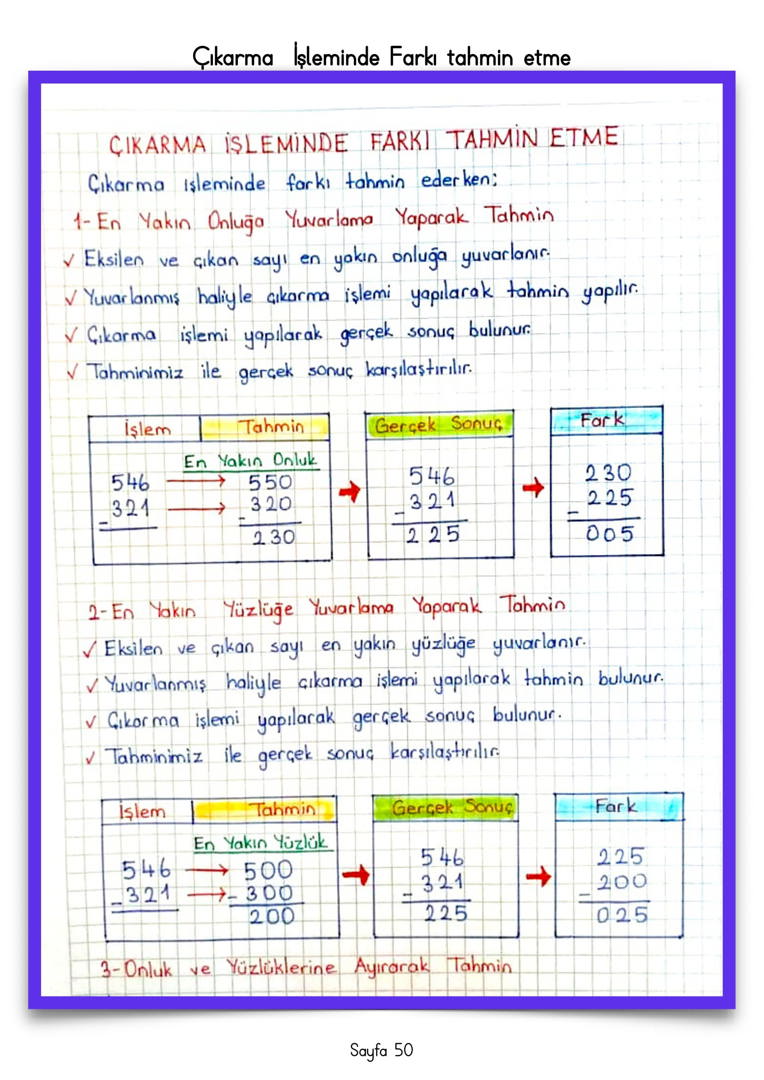 Çıkarma İşleminde Farkı tahmin etme
ÇIKARMA İŞLEMİNDE FARKI TAHMİN ETME
Çıkarma işleminde farkı tahmin ederken;
1- En Yakın Onluğa Yuvarlama Yaparak Tahmin
✓ Eksilen ve çıkan sayı en yakın onluğa yuvarlanır.
✓ Yuvarlanmış haliyle çıkarma işlemi yapılarak tahmin yapılır.
✓ Çıkarma işlemi yapılarak gerçek sonuç bulunur.
✓ Tahminimiz ile gerçek sonuç karşılaştırılır.
İşlem Tahmin Gerçek Sonuç Fark
En Yakın Onluk
546 → 550 546 230
- 321 → - 320 - 321 - 225
230 225 005
2- En Yakın Yüzlüğe Yuvarlama Yaparak Tahmin
✓ Eksilen ve çıkan sayı en yakın yüzlüğe yuvarlanır.
✓ Yuvarlanmış haliyle çıkarma işlemi yapılarak tahmin bulunur.
✓ Çıkarma işlemi yapılarak gerçek sonuç bulunur.
✓ Tahminimiz ile gerçek sonuç karşılaştırılır.
İşlem Tahmin Gerçek Sonuç Fark
En Yakın Yüzlük
546 → 500 546 225
- 321 → - 300 - 321 - 200
200 225 025
3- Onluk ve Yüzlüklerine Ayırarak Tahmin
Sayfa 50